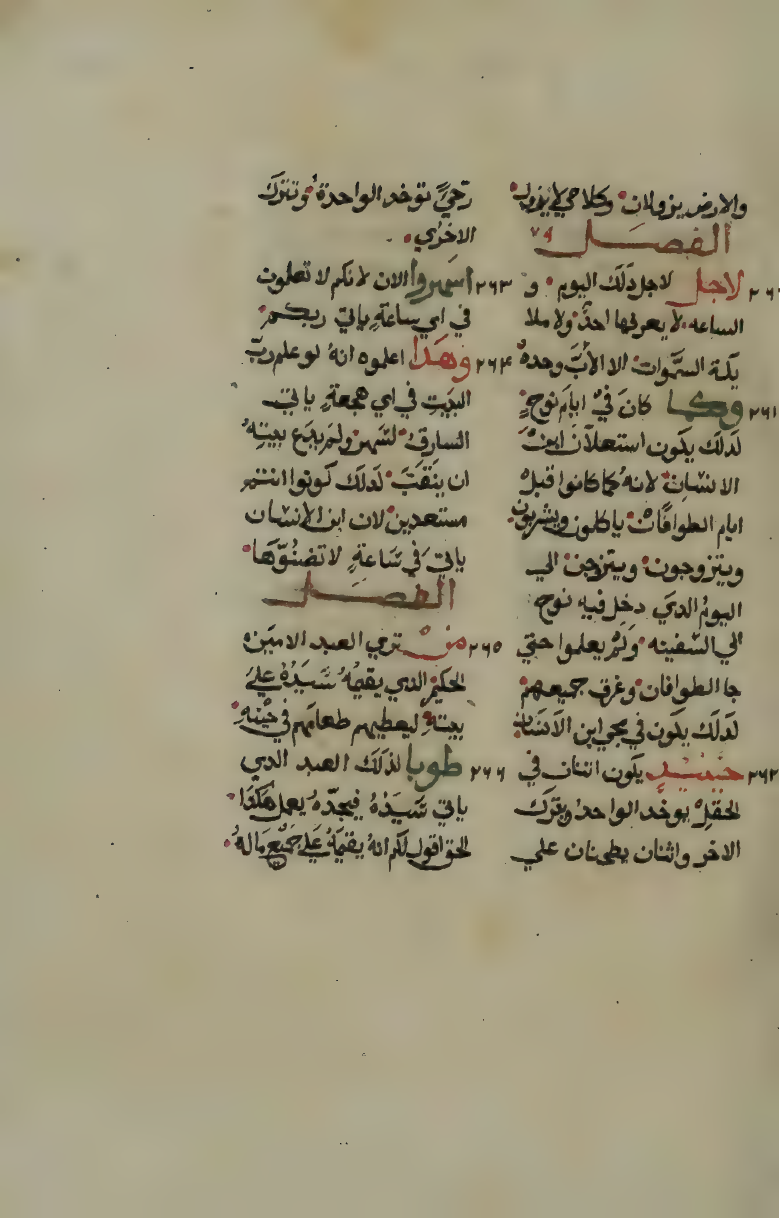 والارض يزولان وكلامي لا يزول
الفصل ٧٩
لاجل لاجل ذلك اليوم و
الساعه لا يعرفها احدٌ ولا ملا
يكة السموات الا الاب وحده
٢٦١ وكما كان في ايام نوح
لذلك يكون استعلان ابن
الانسان لانه كما كانوا قبل
ايام الطوافان ياكلون ويشربون
ويتزوجون ويتزوجن الي
اليوم الدي دخل فيه نوح
الي السفينه ولم يعلموا حتي
جا الطوافان وغرق جميعهم
لذلك يكون في مجي ابن الانسان
٢٦٢ حينيدٍ يكون اثنان في
الحقل يوخد الواحد ويترك
الاخر واثنان يطحنان علي
رحيً توخد الواحدة وتترك
الاخري
٢٦٣ اسهروا الان لانكم لا تعلمون
في اي ساعةٍ ياتي ربكم
٢٦٤ وهذا اعلموه انه لو علم رب
البيت في اي هجعةٍ ياتي
السارق لسهر ولم يدع بيته
ان ينقب لدلك كونوا انتم
مستعدين لان ابن الانسان
ياتي في ساعةٍ لا تضنوها
الفصل
٢٦٥ من تري العبد الامين
الحكيم الدي يقيمه سيده علي
بيته ليعطيهم طعامهم في حينه
٢٦٦ طوبا لذلك العبد الدي
ياتي سيده فيجده يعمل هكذا
الحق اقول لكم انه يقيمه علي جميع ماله